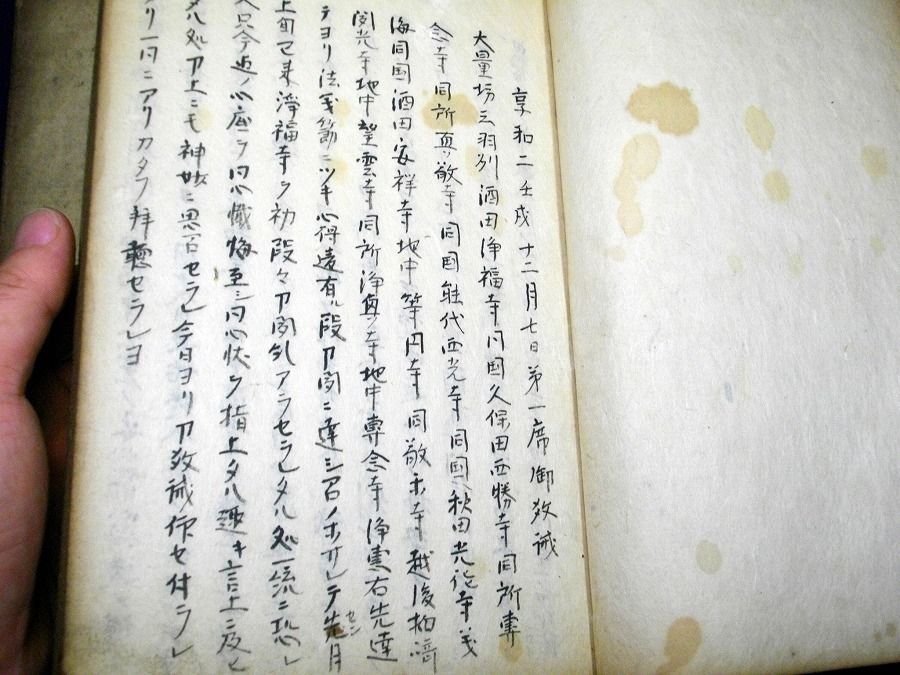 享和二壬戌十二月七日第一席御教誡
大量坊云羽列酒田浄福寺同国久保田西勝寺同所専
念寺同所真敬寺同国能代西光寺同国秋田光徳寺義
海同国酒田安祥寺地中等円寺同敬示寺越後柏崎
聞光寺地中聖雲寺同所浄真寺地中専念寺浄憲右先達
テヨリ法義筋ニツキ心得違有ル段御聞ニ達シ召ノホサレテ先月
上旬マテ来浄福寺ヲ初段々御聞糺アラセラレタル処一統ニ恐レ
只今迄ノ心底ヲ回心懺悔至シ回心状ヲ指上タル趣キ言上ニ及ヒ
タル処御上ニモ神妙ニ思召セラレ今日ヨリ御教誡仰セ付ラレ
リ一同ニアリカタフ拝聴セラレヨ